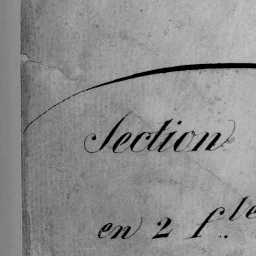 Section
en 2 f.les